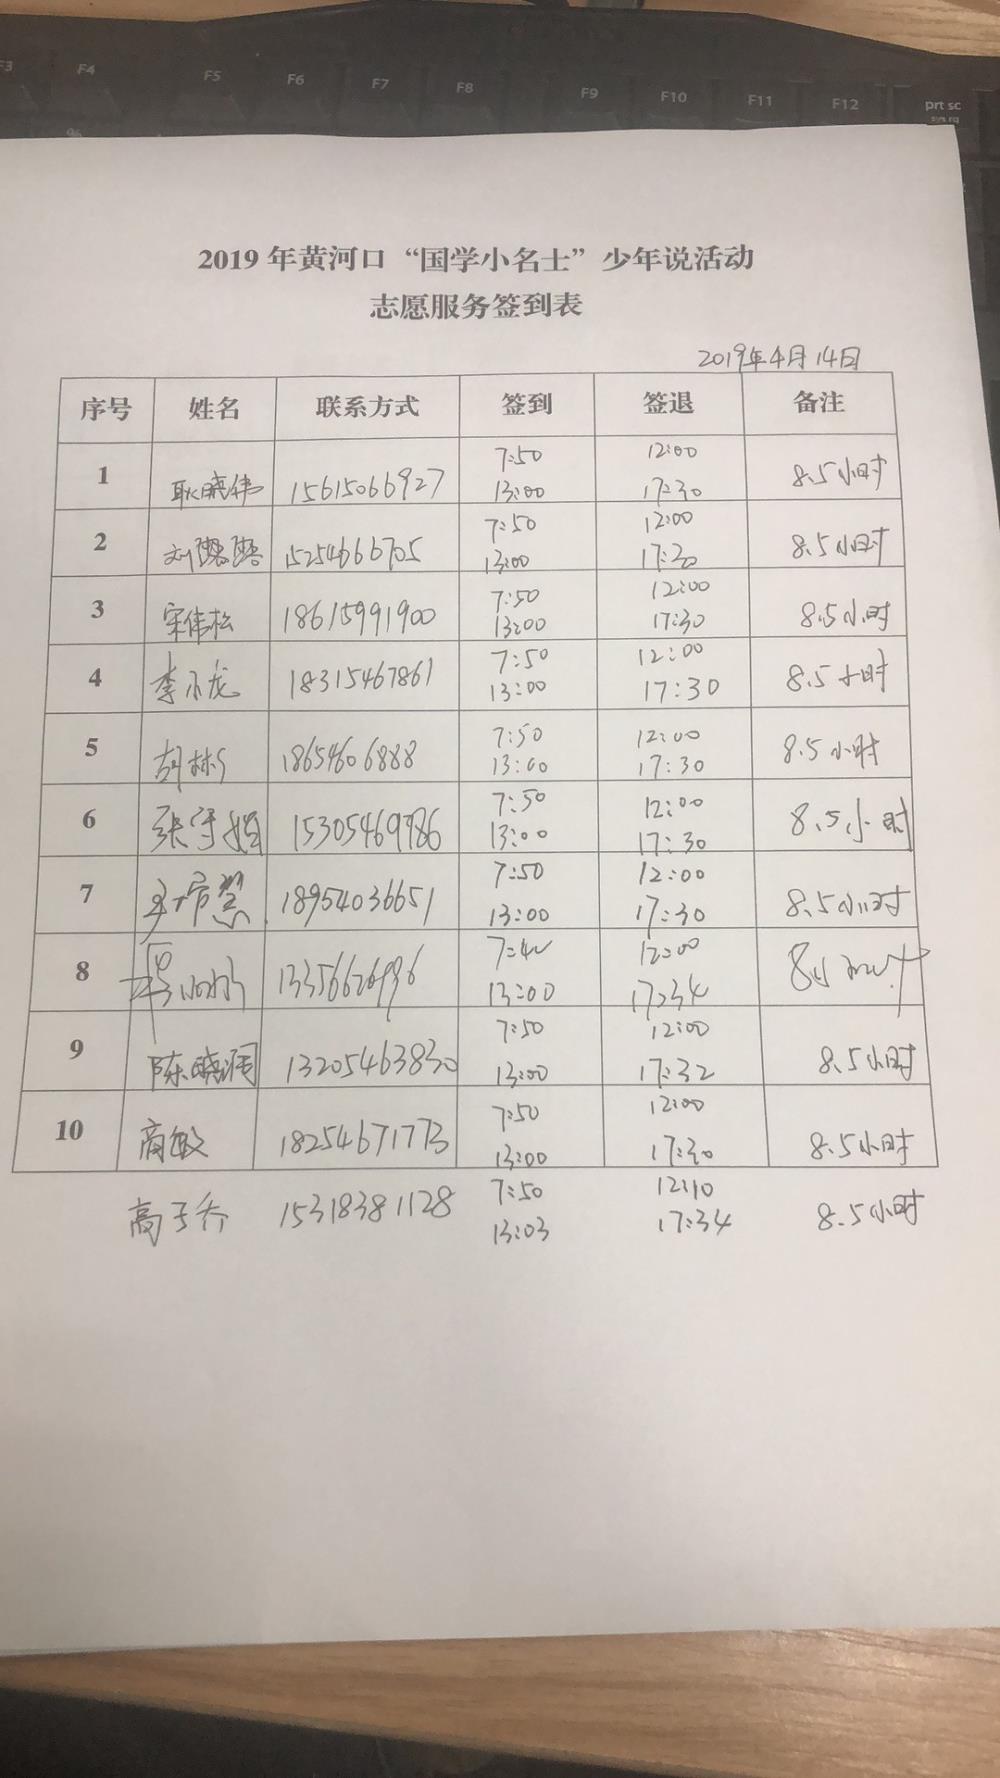 F3 F4 F5 F6 F7 F8 F9 F10 F11 F12 prt sc
%
sys rq
2019 年黄河口 “国学小名士” 少年说活动
志愿服务签到表
2019年4月14日
序号 姓名 联系方式 签到 签退 备注
7:50 12:00
1 耿晓伟 15615066927 13:00 17:30 8.5小时
7:50 12:00
2 刘 15254666705 13:00 17:30 8.5小时
7:50 12:00
3 宋伟松 18615991900 13:00 17:30 8.5小时
7:50 12:00
4 李小龙 18315467861 13:00 17:30 8.5小时
7:50 12:00
5 胡彬 18654606888 13:00 17:30 8.5小时
7:50 12:00
6 张 15305469786 13:00 17:30 8.5小时
7:50 12:00
7 18954036651 13:00 17:30 8.5小时
7:40 12:00
8 13:00 17:34
7:50 12:00
9 陈晓润 13205463830 13:00 17:32 8.5小时
7:50 12:00
10 商敏 18254671773 13:00 17:30 8.5小时
7:50 12:10
高子乔 15318381128 13:03 17:34 8.5小时